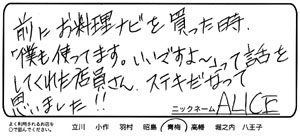 前にお料理ナビを買った時、
「僕も使ってます。いいですよ〜」って話を
してくれた店員さん、ステキだなって
思いました!!
ニックネーム ALICE
よく利用されるお店を
○で囲んでください。 立川 小作 羽村 昭島 青梅 高幡 堀之内 八王子